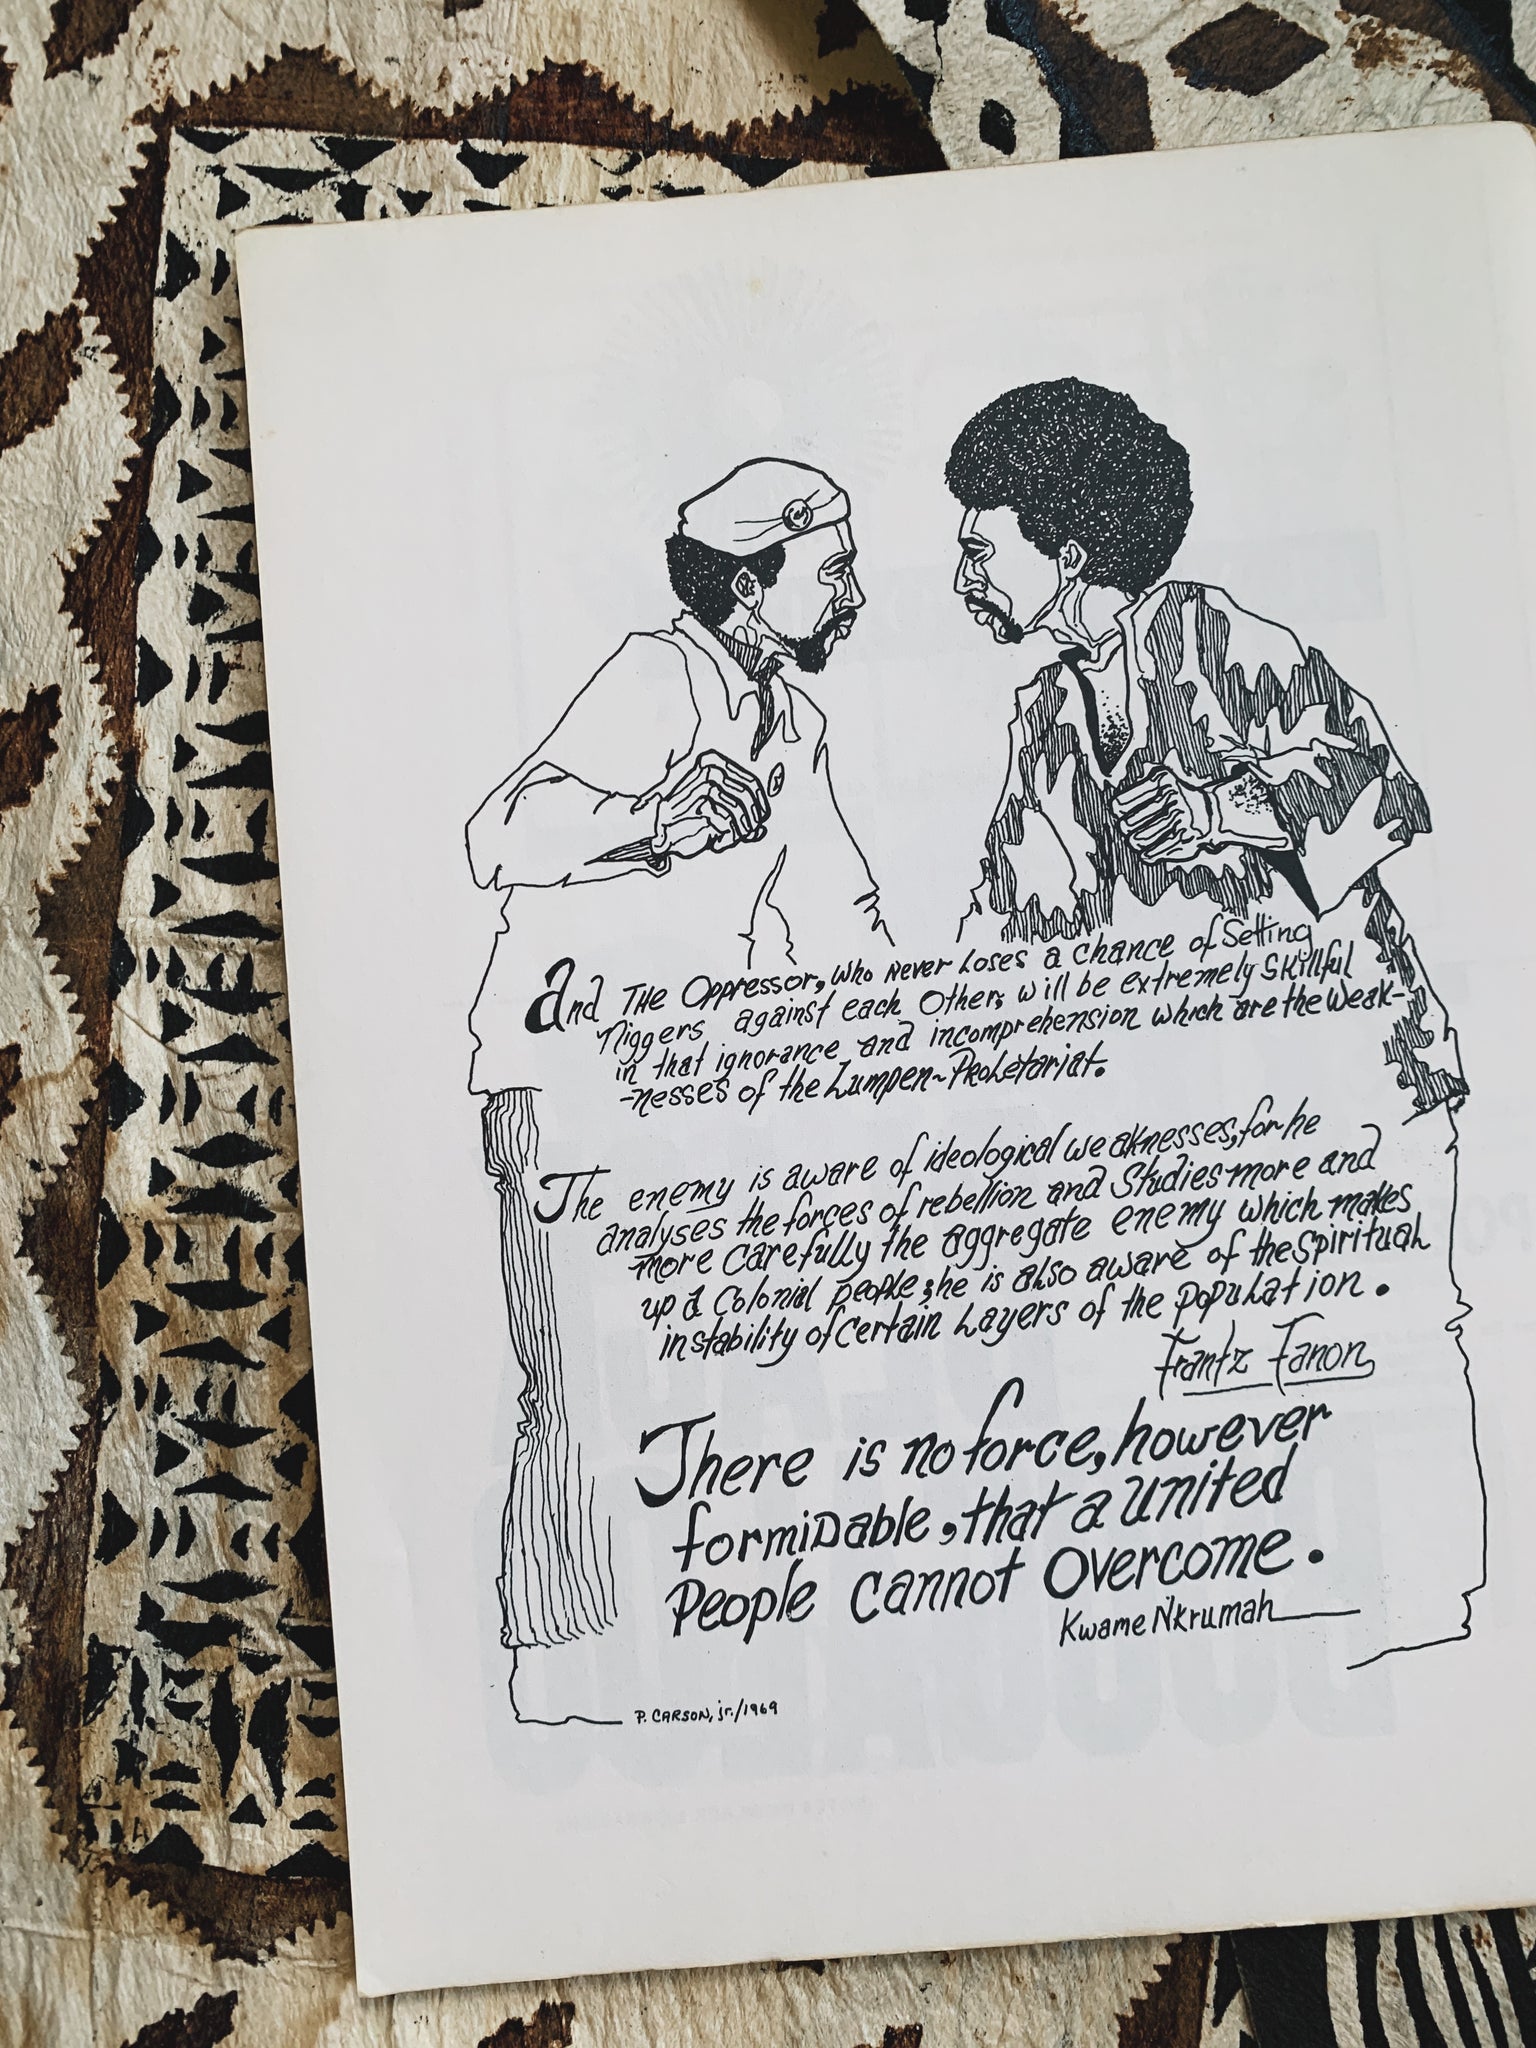 And THE Oppressor, who never Loses a chance of Setting
Niggers against each Other, will be extremely Skillful
in that ignorance and incomprehension which are the weak-
-nesses of the Lumpen-Proletariat.
The enemy is aware of ideological weaknesses, for he
analyses the forces of rebellion and Studies more and
more carefully the aggregate enemy which makes
up a Colonial people; he is also aware of the Spiritual
instability of certain Layers of the population.
Frantz Fanon
There is no force, however
formidable, that a united
People cannot overcome.
Kwame Nkrumah
P. CARSON, jr./1969